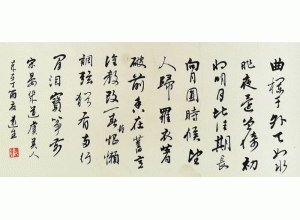 曲欄干外天如水
昨夜還曾倚初
將明月比佳期長
向月圓時候望
人歸羅衣著
破前香在舊意
誰教改一春離恨懶
調弦猶有兩行
閒淚寶箏前
宋晏幾道虞美人
丁酉夏